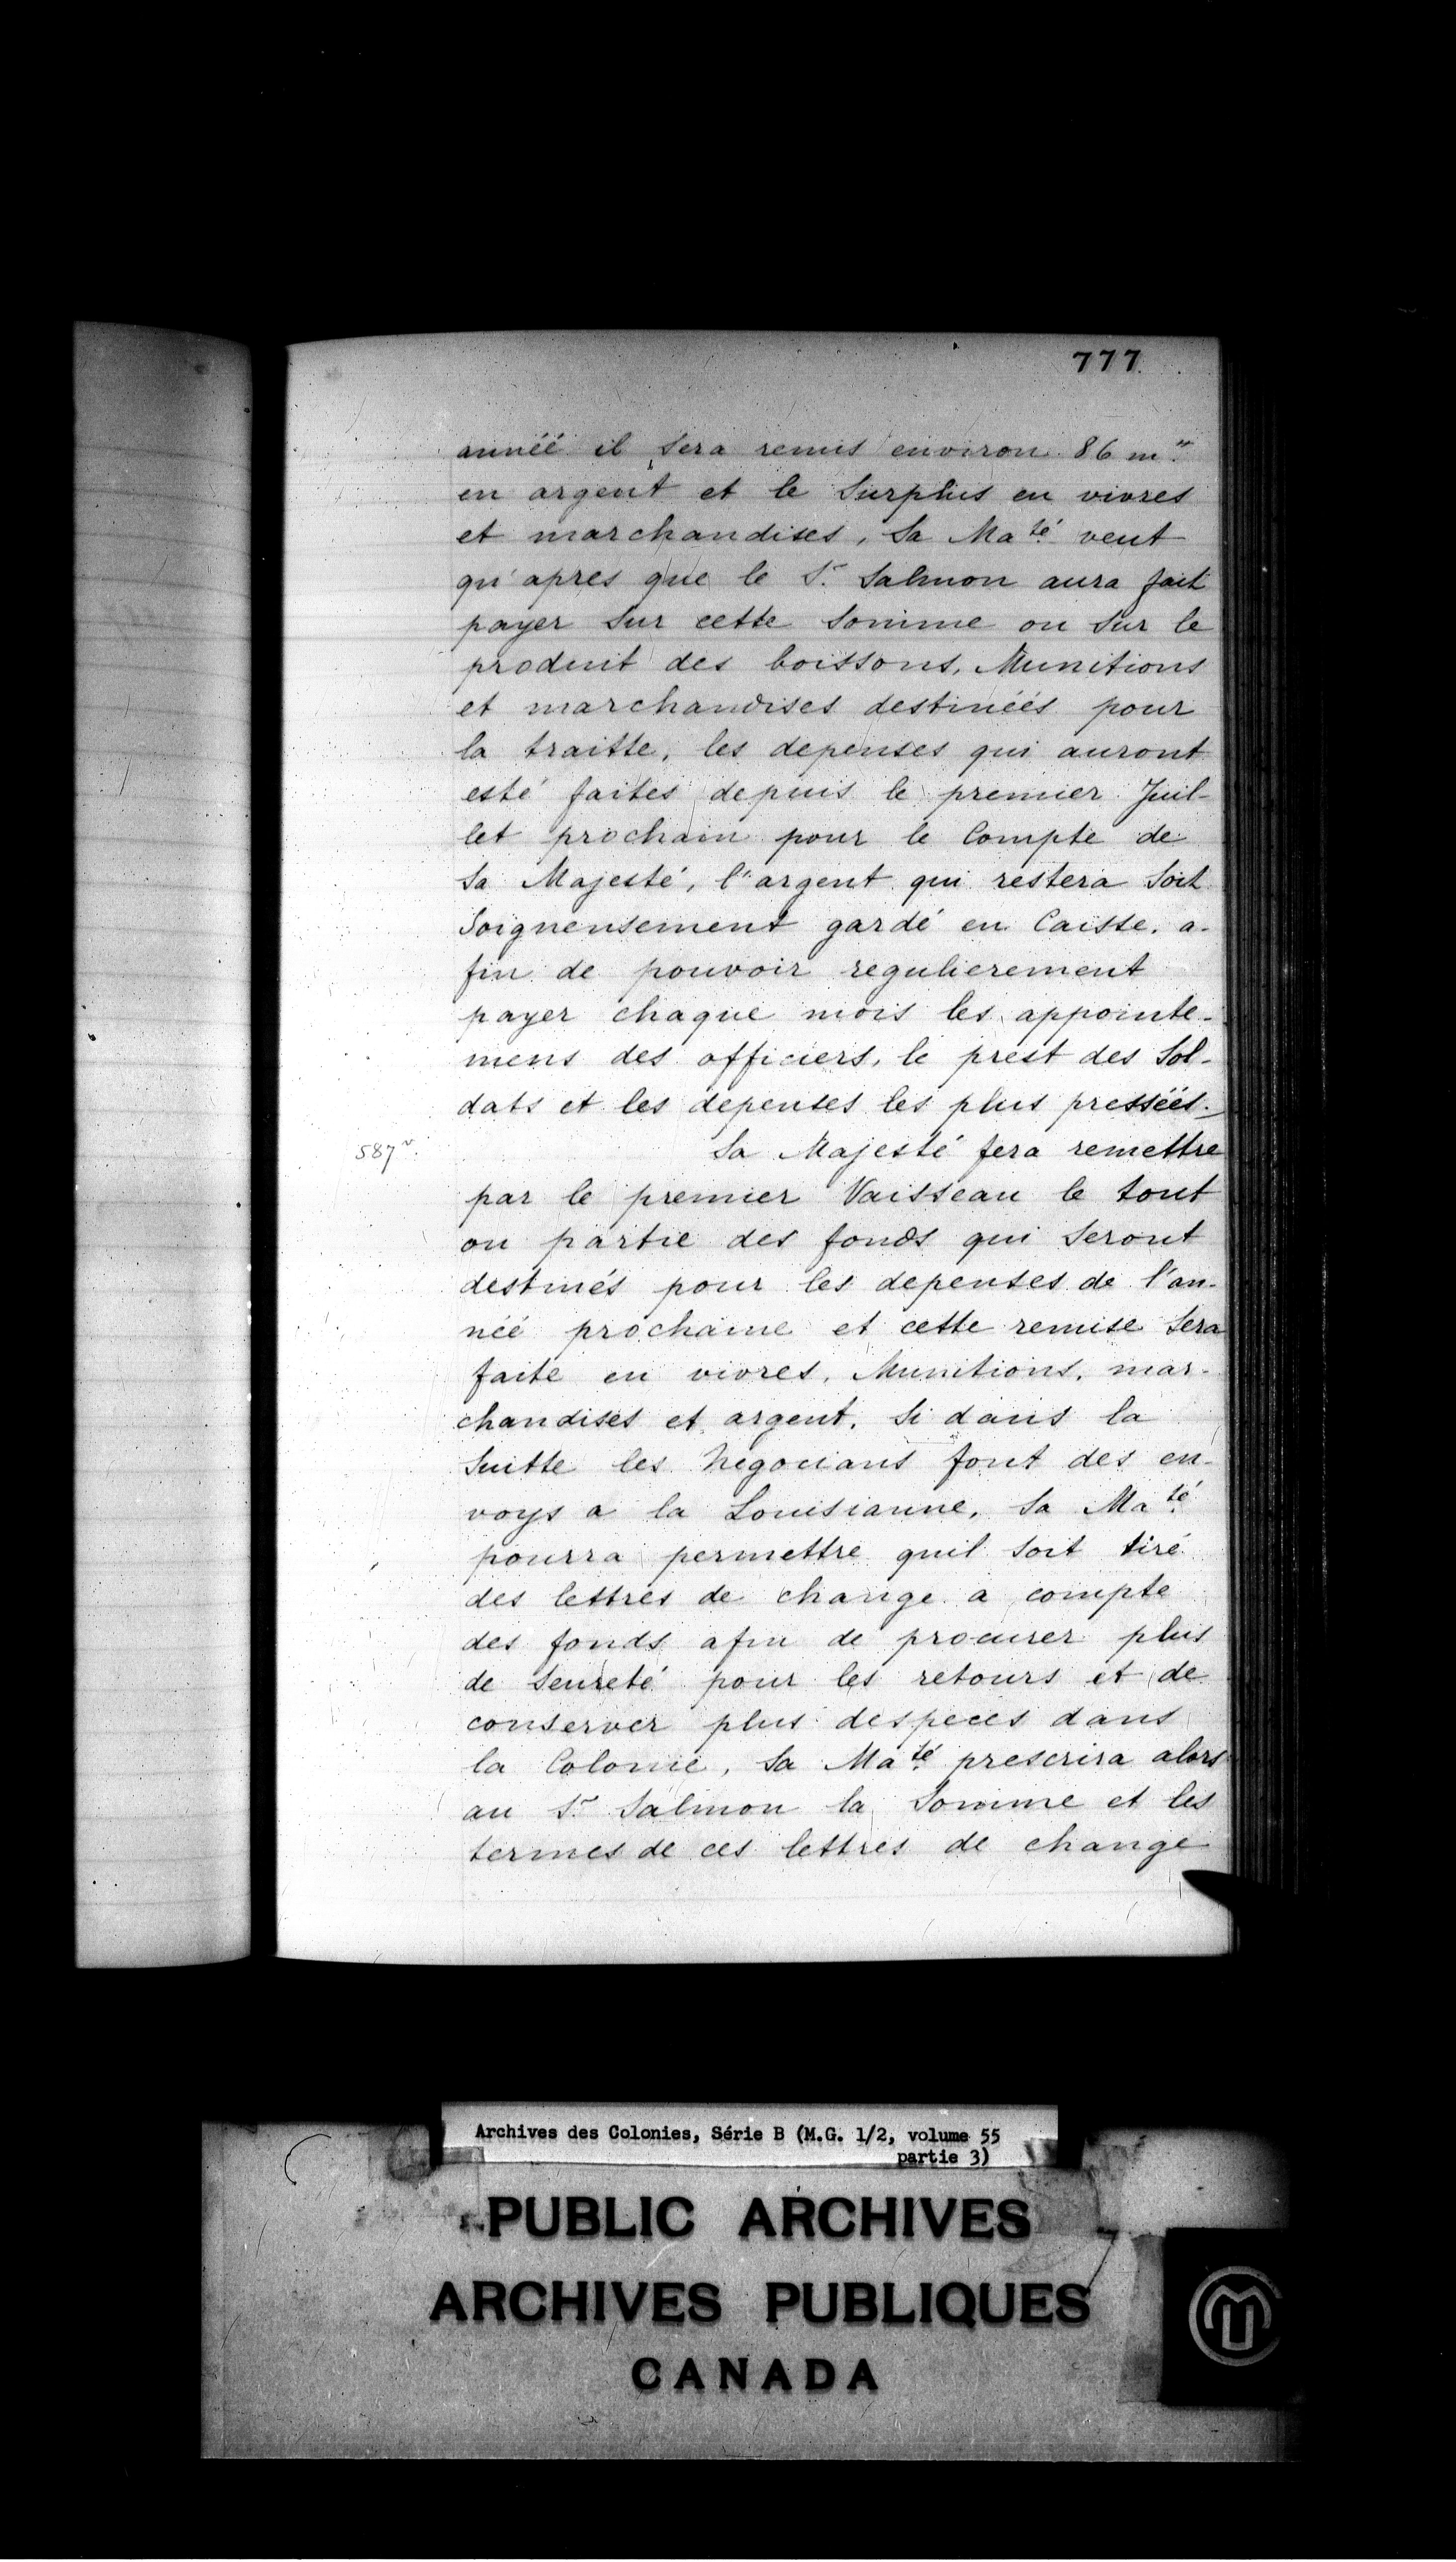 777.
annéé il sera remis environ 86 m.ᵗᵗ
en argent et le surplus en vivres
et marchandises, sa Ma.té veut
qu'apres que le S.r Salmon aura fait
payer sur cette somme ou sur le
produit des boissons, Munitions
et marchandises destinéés pour
la traitte, les depenses qui auront
esté faites depuis le premier Juil-
let prochain pour le Compte de
Sa Majesté, l'argent qui restera soit
soigneusement gardé en Caisse, a-
fin de pouvoir regulierement
payer chaque mois les appointe-
mens des officiers, le prest des Sol-
dats et les depenses les plus presséés.
587 v.
Sa Majesté fera remettre
par le premier Vaisseau le tout
ou partie des fonds qui seront
destinés pour les depenses de l'an-
néé prochaine et cette remise sera
faite en vivres, Munitions, mar-
chandises et argent. Si dans la
suitte les Negocians font des en-
voys a la Louisianne, Sa Ma.té
pourra permettre quil soit tiré
des lettres de change a compte
des fonds afin de procurer plus
de seureté pour les retours et de
conserver plus despeces dans
la Colonie, Sa Ma.té prescrira alors
au S.r Salmon la somme et les
termes de ces lettres de change
Archives des Colonies, Série B (M.G. 1/2, volume 55
partie 3)
PUBLIC ARCHIVES
ARCHIVES PUBLIQUES
CANADA